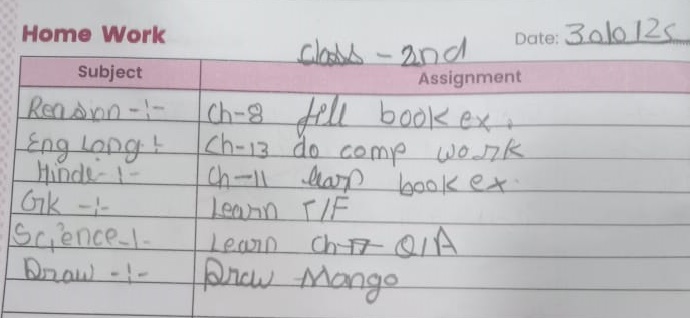 Home Work
Class - 2nd
Date: 30/0125
Subject Assignment
Reason -:- Ch-8 fill book ex.
Eng Lang : Ch-13 do comp work
Hindi -:- Ch-11 learn book ex.
GK -:- Learn T/F
Science -:- Learn Ch-17 Q/A
Draw -:- Draw Mango